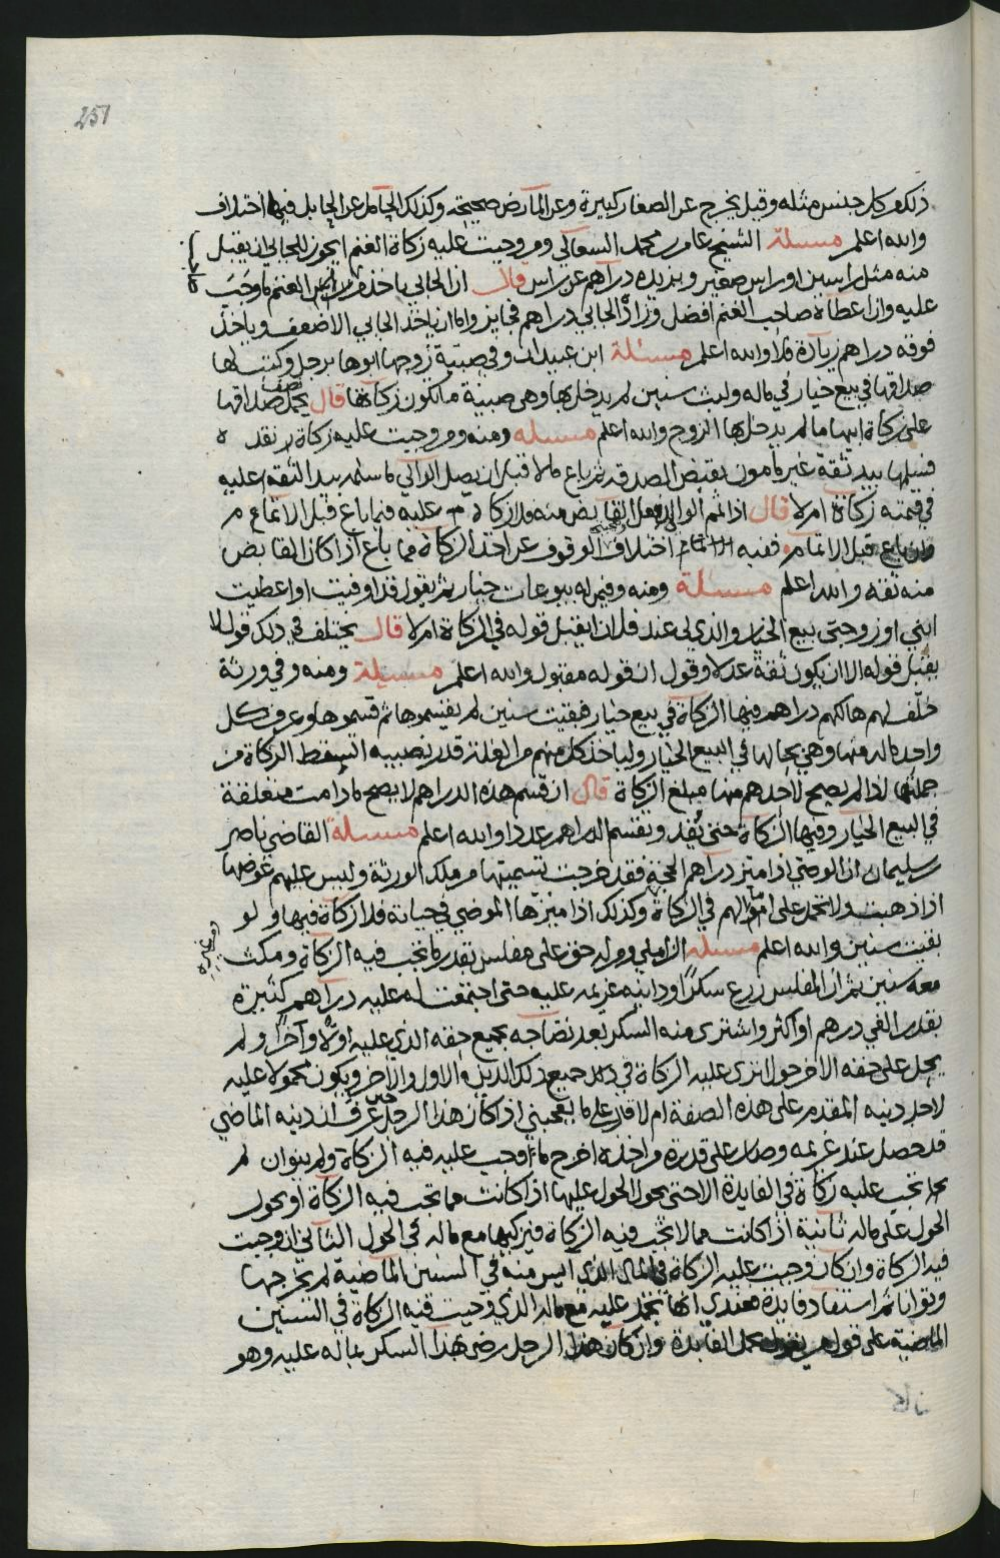 251
ذلك من كل جنس مثله وقيل يخرج عن الصغار كبيرة وعن المارض صحيحة وكذلك الحامل عن الحايل فيها اختلاف
والله اعلم مسئلة الشيخ عامر بن محمد السعالي ومن وجبت عليه زكاة الغنم ايجوز للجابي ان يقبل
منه مثل راسين او راس صغير ويزيده دراهم عن راس قال ان الجابي ياخذ من راس الغنم ما وجب
عليه وان اعطاه صاحب الغنم افضل وزاده الجابي دراهم فجايز واما ان ياخذ الجابي الاضعف وياخذ
فوقه دراهم زيادة فلا والله اعلم مسئلة ابن عبيدان وفي صبية زوجها ابوها برجل وكتب لها
صداقها في بيع خيار في ماله ولبث سنين لم يدخل بها وهي صبية ما تكون زكاتها قال يحمل نصف صداقها
على زكاة ابيها ما لم يدخل بها الزوج والله اعلم مسئله ومنه ومن وجبت عليه زكاة بر نقد
فسلمها بيد ثقة غير مأمون بقبض الصدقة ثم باع مالا قبل ان يصل الوالي ما سلمه بيد الثقة اعليه
في قيمته زكاة ام لا قال اذا اتم الوالي فعل القابض منه فلا زكاة عليه فيما باع قبل الاتمام
وان باع قبل الاتمام ففيه اختلاف الوقوف عن اخذ الزكاة مما باع اذا كان القابض
منه ثقه والله اعلم مسئلة ومنه وفيمن له بيوعات خيار ثم يقول قد اوفيت او اعطيت
ابني او زوجتي بيع الخيار والذي لي عند فلان ايقبل قوله في الزكاة ام لا قال يختلف في ذلك قول لا
يقبل قوله الا ان يكون ثقة عدلا وقول ان قوله مقبول والله اعلم مسئلة ومنه وفي ورثة
خلف لهم هالكهم دراهم فيها الزكاة في بيع خيار فبقيت سنين لم يقسموها ثم قسموها وعرف كل
واحد ماله منها وهي بحالها في البيع الخيار ولياخذ كل منهم من الغلة قدر نصيبه اتسقط الزكاة من
جملتها اذا لم يصح لاحدهم منها مبلغ الزكاة قال ان قسم هذه الدراهم لا يصح ما دامت متعلقة
في البيع الخيار وفيها الزكاة حتى تفد وتقسم الدراهم عددا والله اعلم مسئلة القاضي ناصر
بن سليمان ان الوصي اذا ميز دراهم الحجة فقد خرجت تسميتها من ملك الورثة وليس عليهم عوضها
اذا ذهبت ولا تحمل على اموالهم في الزكاة وكذلك اذا ميزها الموصي في حياته فلا زكاة فيها ولو
بقيت سنين والله اعلم مسئله الزاملي ومن له حق على مفلس بقدر ما تجب فيه الزكاة ومكث
معه سنين ثم ان المفلس زرع سكرا وداينه غريمه عليه حتى اجتمعت له عليه دراهم كثيرة
بقدر الفي درهم او اكثر واشترى منه السكر بعد نضاجه بجميع حقه الذي عليه اولا وآخرا ولم
يحل على حقه الاخر حول اترى عليه الزكاة في جميع ذلك الدين والاول والاخر ويكون محمولا عليه
لاجل دينه المقدم على هذه الصفة ام لا قال على ما يعجبني اذا كان هذا الرجل حين عرف ان دينه الماضي
قد حصل عند غريمه وصار على قدرة من اخذه اخرج ما وجب عليه فيه الزكاة ولم يتوان لم
تجب عليه زكاة في الفايدة الا حتى يحول الحول عليها اذا كانت مما تجب فيه الزكاة او يحول
الحول على ماله ثانية اذا كانت مما لا تجب فيه الزكاة فيزكيها مع ماله في الحول الثاني ان وجبت
فيه الزكاة وان كان وجبت عليه الزكاة في المال الذي ايس منه في السنين الماضية لم يخرجها
وتوانا ثم استفاد فايدة فعندي انها تحمل عليه مع ماله الذي وجبت فيه الزكاة في السنين
الماضية على قول من يقول بحمل الفايدة وان كان هذا الرجل رضي بهذا السكر بماله عليه وهو
كان